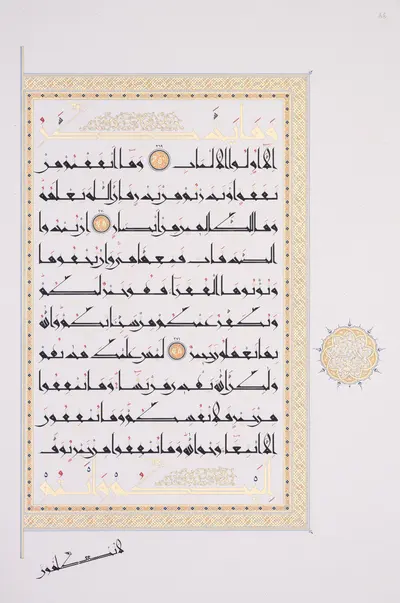 وما يذكر
إلا أولوا الألباب ٢٦٩ وما أنفقتم من
نفقة أو نذرتم من نذر فإن الله يعلمه
وما للظلمين من أنصار ٢٧٠ إن تبدوا
الصدقات فنعما هي وإن تخفوها
وتؤتوها الفقراء فهو خير لكم
ويكفر عنكم من سيئاتكم والله
بما تعملون خبير ٢٧١ ليس عليك هديهم
ولكن الله يهدي من يشاء وما تنفقوا
من خير فلأنفسكم وما تنفقون
إلا ابتغاء وجه الله وما تنفقوا من خير يوف
إليكم وأنتم
لا تظلمون